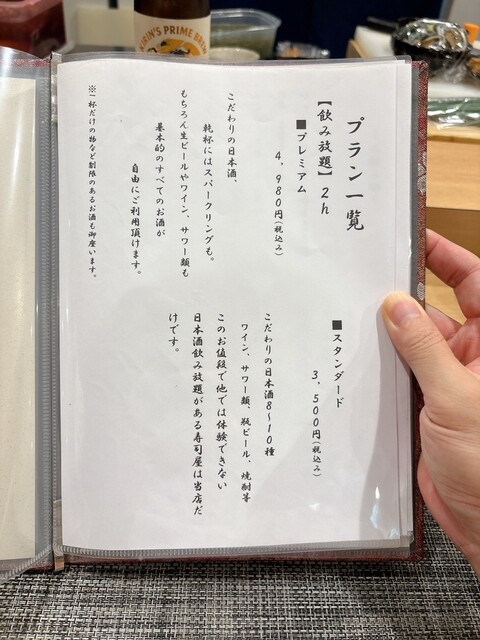 KIRIN'S PRIME BREW
プラン一覧
【飲み放題】2h
■プレミアム
4,980円(税込み)
こだわりの日本酒、
乾杯にはスパークリングも。
もちろん生ビールやワイン、サワー類も
基本的のすべてのお酒が
自由にご利用頂けます。
※一杯だけの物など制限のあるお酒も御座います。
■スタンダード
3,500円(税込み)
こだわりの日本酒8〜10種
ワイン、サワー類、瓶ビール、焼酎等
このお値段で他では体験できない
日本酒飲み放題がある寿司屋は当店だ
けです。